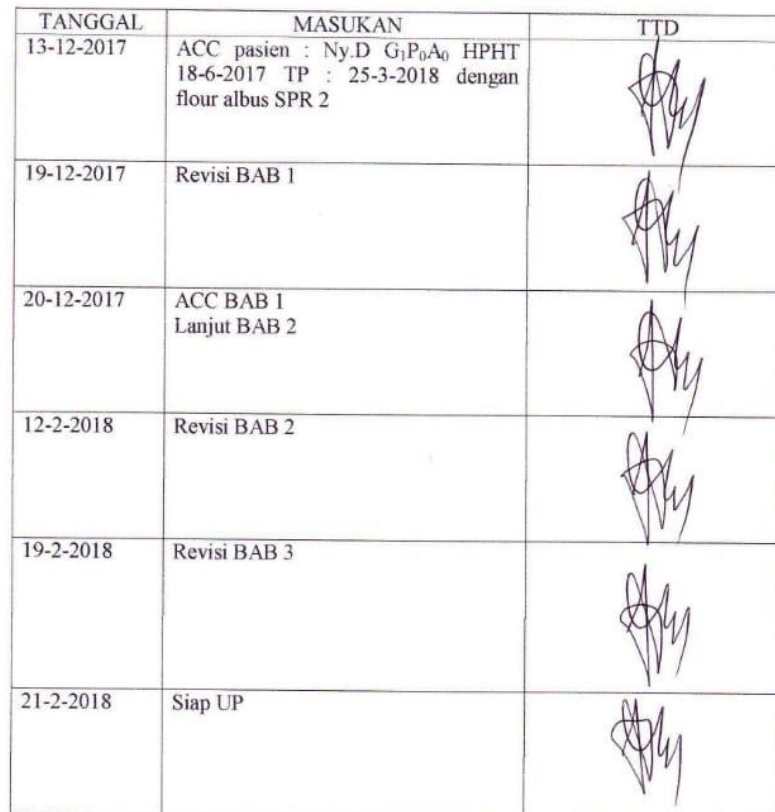 TANGGAL MASUKAN TTD
13-12-2017 ACC pasien : Ny.D G₁P₀A₀ HPHT
18-6-2017 TP : 25-3-2018 dengan
flour albus SPR 2
19-12-2017 Revisi BAB 1
20-12-2017 ACC BAB 1
Lanjut BAB 2
12-2-2018 Revisi BAB 2
19-2-2018 Revisi BAB 3
21-2-2018 Siap UP